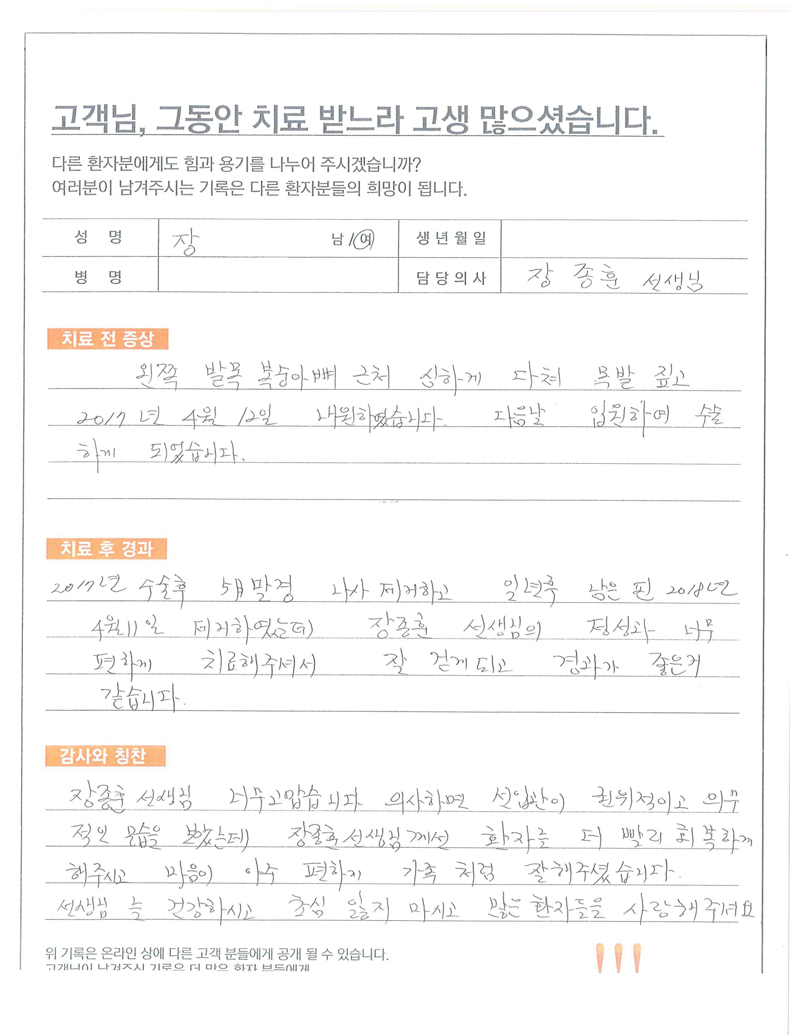 고객님, 그동안 치료 받느라 고생 많으셨습니다.
다른 환자분에게도 힘과 용기를 나누어 주시겠습니까?
여러분이 남겨주시는 기록은 다른 환자분들의 희망이 됩니다.
성 명 장 남 / 여 생년월일
병 명 담당의사 장 종훈 선생님
치료 전 증상
왼쪽 발목 복숭아뼈 근처 심하게 다쳐 목발 짚고
2017년 4월 12일 내원하였습니다. 다음날 입원하여 수술
하게 되었습니다.
치료 후 경과
2017년 수술후 5月말경 나사 제거하고 일년후 남은 핀 2018년
4월11일 제거하였는데 장종훈 선생님의 정성과 너무
편하게 치료해주셔서 잘 걷게되고 경과가 좋은거
같습니다.
감사와 칭찬
장종훈 선생님 너무고맙습니다 의사하면 선입관이 권위적이고 의무
적인 모습을 봤었는데 장종훈선생님께선 환자를 더 빨리 회복하게
해주시고 마음이 아주 편하게 가족처럼 잘해주셨습니다.
선생님 늘 건강하시고 초심 잃지 마시고 많은환자들을 사랑해주셔요
위 기록은 온라인 상에 다른 고객 분들에게 공개 될 수 있습니다.
고객님이 남겨주신 기록은 더 많은 환자 분들에게